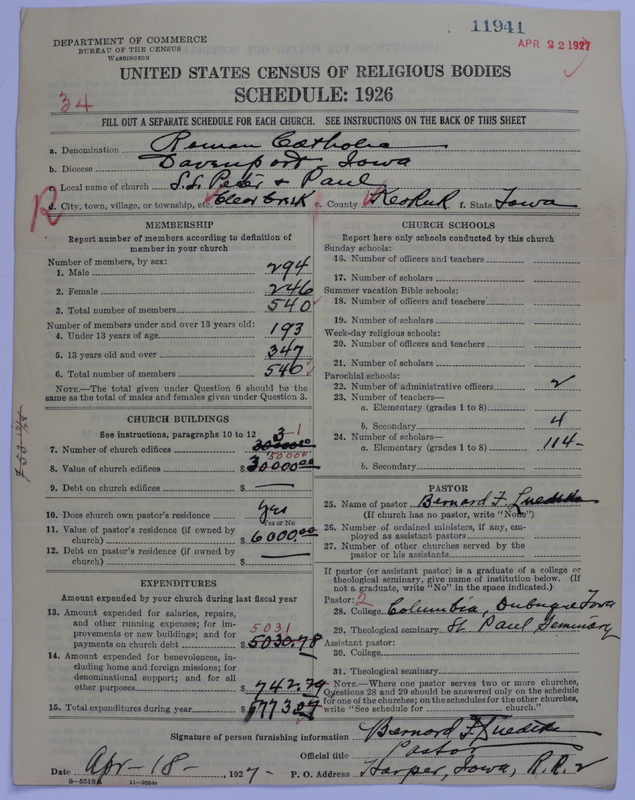 11941
APR 22 1927
DEPARTMENT OF COMMERCE
BUREAU OF THE CENSUS
WASHINGTON
UNITED STATES CENSUS OF RELIGIOUS BODIES
SCHEDULE: 1926
34
FILL OUT A SEPARATE SCHEDULE FOR EACH CHURCH. SEE INSTRUCTIONS ON THE BACK OF THIS SHEET
a. Denomination Roman Catholic
b. Diocese Davenport - Iowa
c. Local name of church S.S. Peter & Paul
R d. City, town, village, or township, etc. Clear Creek e. County Keokuk f. State Iowa
MEMBERSHIP
Report number of members according to definition of
member in your church
Number of members, by sex:
1. Male 294
2. Female 246
3. Total number of members 540
Number of members under and over 13 years old:
4. Under 13 years of age 193
5. 13 years old and over 347
6. Total number of members 540
NOTE.—The total given under Question 6 should be the
same as the total of males and females given under Question 3.
CHURCH BUILDINGS
See instructions, paragraphs 10 to 12
7. Number of church edifices 1
8. Value of church edifices $ 30000.00
9. Debt on church edifices $ —
10. Does church own pastor's residence? Yes
Yes or No
11. Value of pastor's residence (if owned by
church) $ 6000.00
12. Debt on pastor's residence (if owned by
church) $ —
EXPENDITURES
Amount expended by your church during last fiscal year
13. Amount expended for salaries, repairs,
and other running expenses; for im-
provements or new buildings; and for
payments on church debt $ 5030.78
5031
14. Amount expended for benevolences, in-
cluding home and foreign missions; for
denominational support; and for all
other purposes 742.79
15. Total expenditures during year $
CHURCH SCHOOLS
Report here only schools conducted by this church
Sunday schools:
16. Number of officers and teachers
17. Number of scholars
Summer vacation Bible schools:
18. Number of officers and teachers
19. Number of scholars
Week-day religious schools:
20. Number of officers and teachers
21. Number of scholars
Parochial schools:
22. Number of administrative officers 2
23. Number of teachers—
a. Elementary (grades 1 to 8)
b. Secondary 4
24. Number of scholars—
a. Elementary (grades 1 to 8) 114-
b. Secondary
PASTOR
25. Name of pastor Bernard F.
(If church has no pastor, write "None")
26. Number of ordained ministers, if any, em-
ployed as assistant pastors
27. Number of other churches served by the
pastor or his assistants
If pastor (or assistant pastor) is a graduate of a college or
theological seminary, give name of institution below. (If
not a graduate, write "No" in the space indicated.)
Pastor: 2
28. College Columbia, Dubuque Iowa
29. Theological seminary St. Paul Seminary
Assistant pastor:
30. College
31. Theological seminary
NOTE.—Where one pastor serves two or more churches,
Questions 28 and 29 should be answered only on the schedule
for one of the churches; on the schedules for the other churches,
write "See schedule for church."
Signature of person furnishing information Bernard F.
Official title Pastor
Date Apr - 18 - 1927- P. O. Address Harper, Iowa, R.R. 2
8-5518A 11-9654